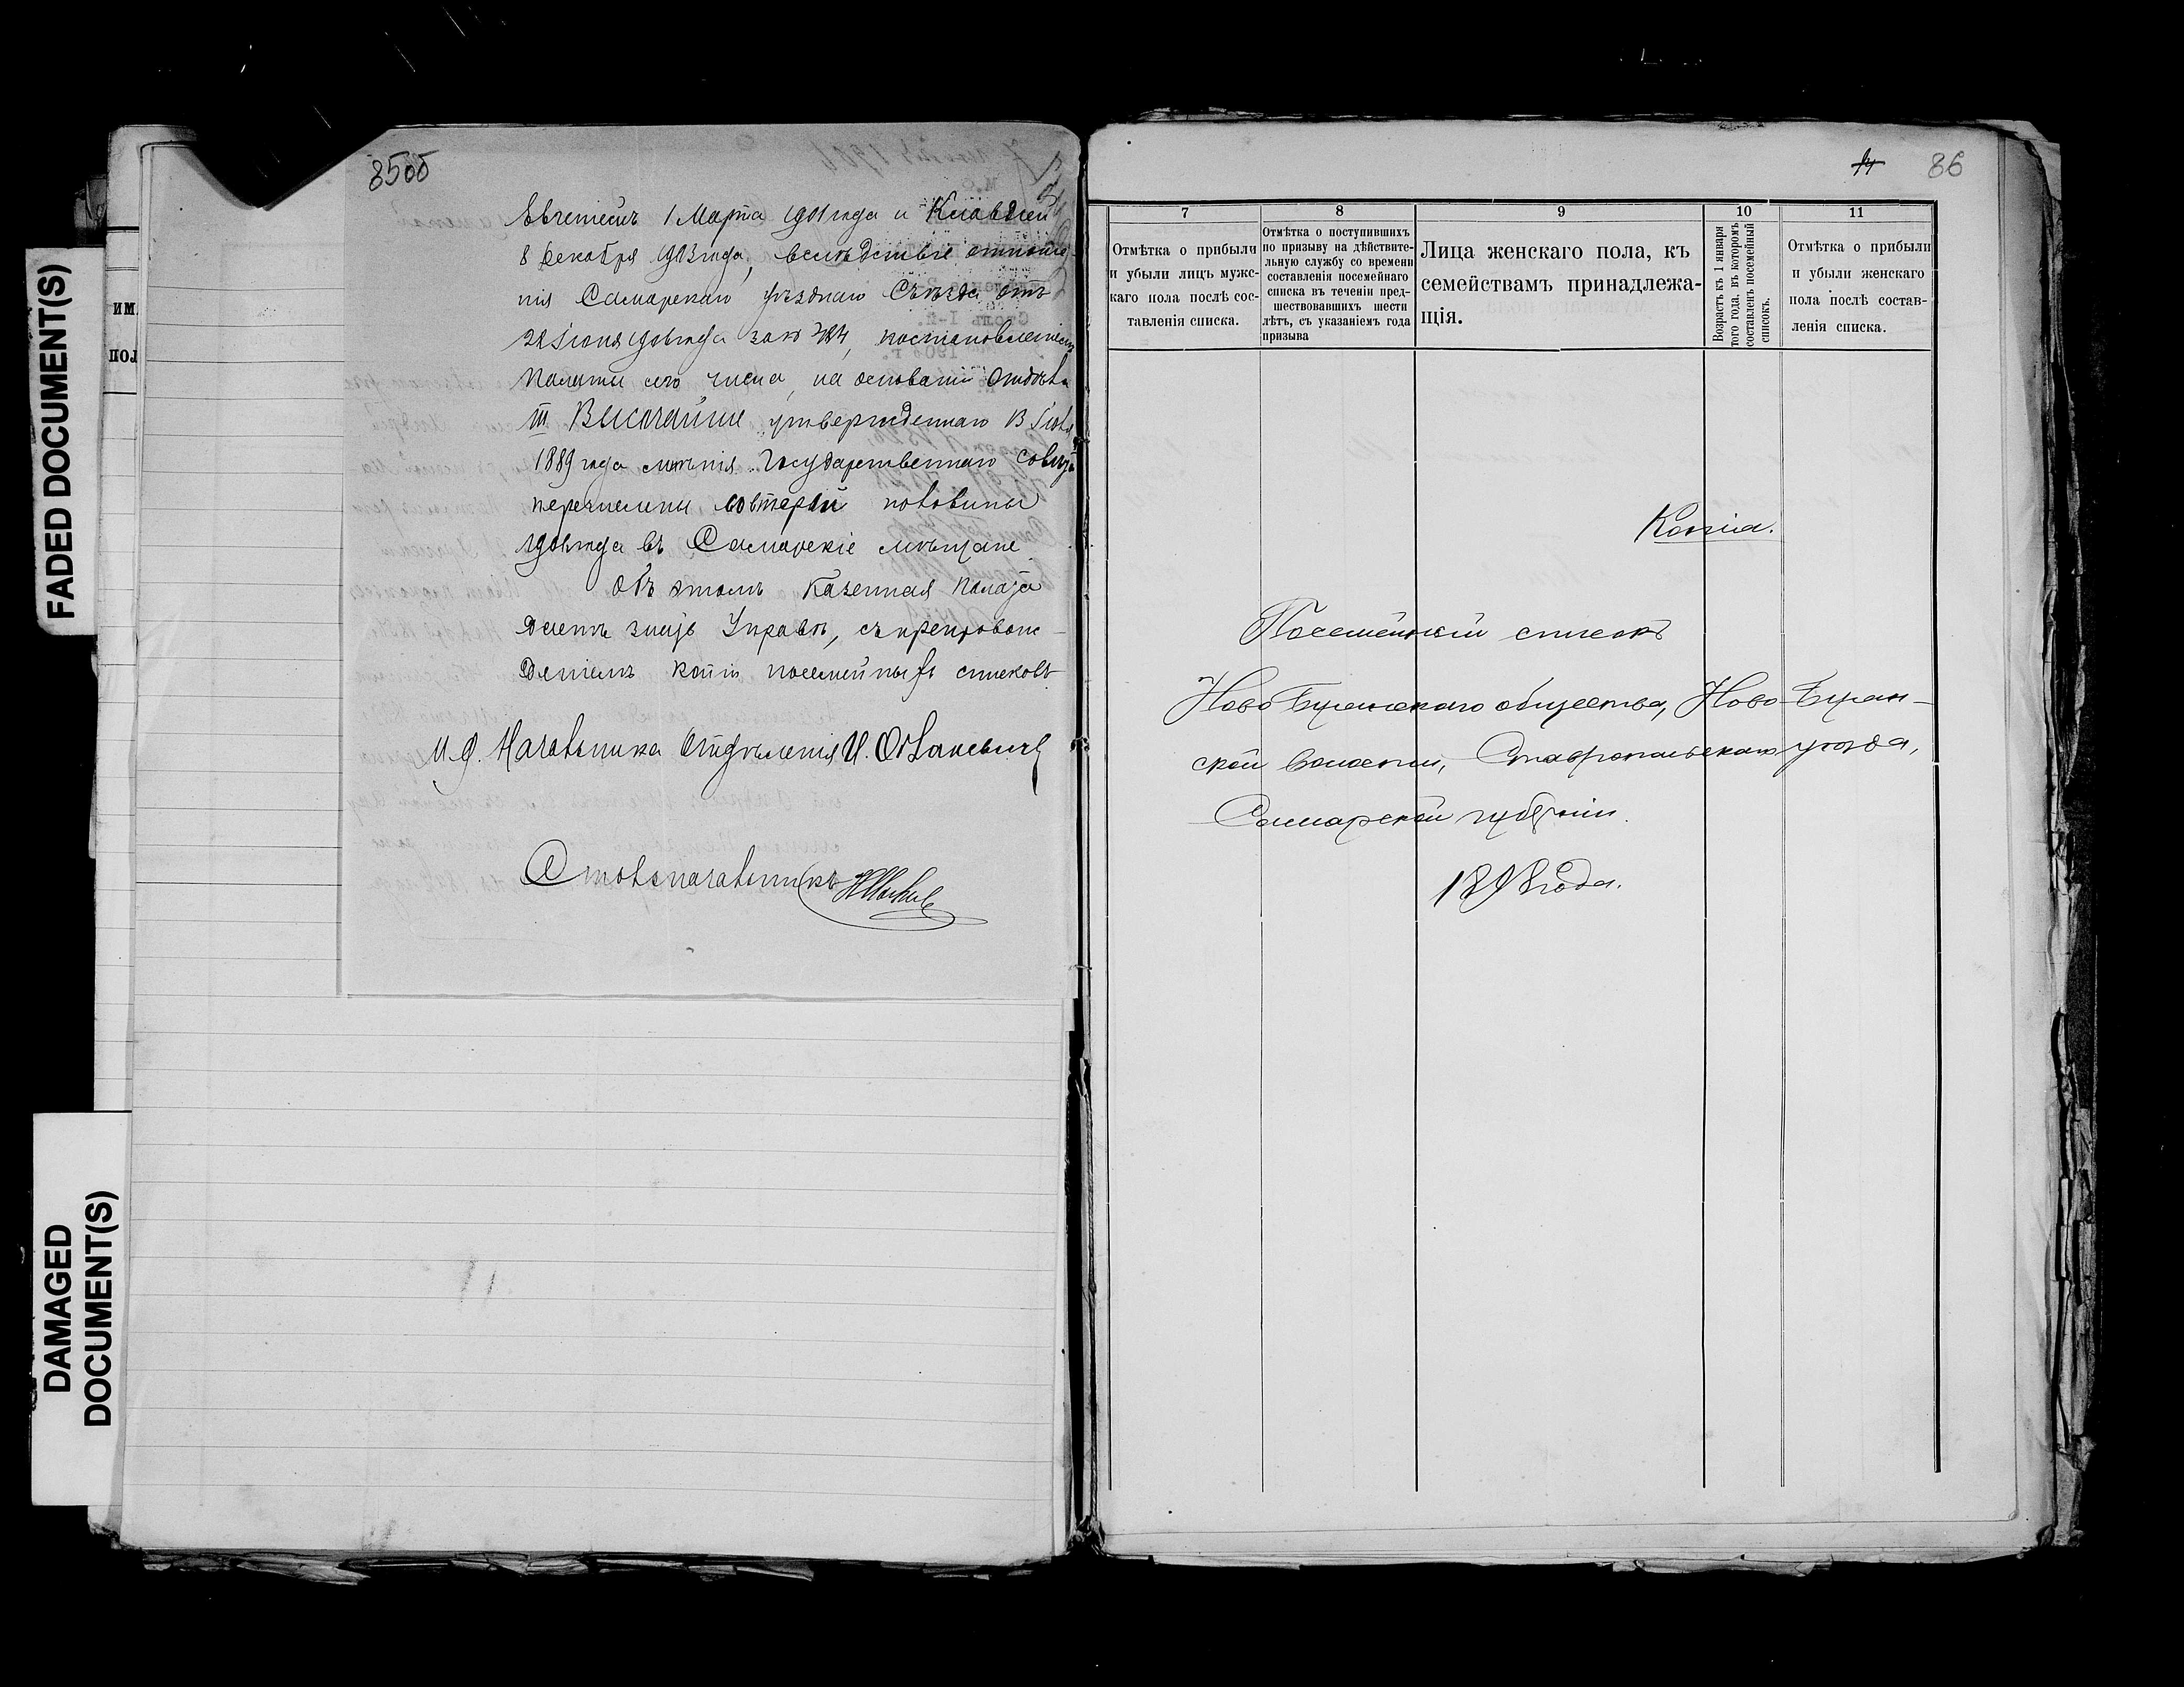 FADED DOCUMENT(S)
DAMAGED
DOCUMENT(S)
ИМ
ПОЛ
85об
Евгеніемъ 1 Марта 1901 года и Клавдіей
8 декабря 1903 года, вслѣдствіе отноше-
нія Самарскаго уѣзднаго Съѣзда отъ
22 Іюня 1906 года за №, постановленіемъ
Палаты сего числа, на основаніи Отдѣла
III Высочайше утвержденнаго 13 Іюля
1889 года мнѣнія Государственнаго Совѣта
перечислены со второй половины
1906 года въ Самарскіе мѣщане.
Объ этомъ Казенная Палата
даетъ знать Управѣ, съ препровож-
деніемъ копіи посемейныхъ списковъ
И. д. Начальника Отдѣленія И.
Столоначальникъ
14 86
7 8 9 10 11
Отмѣтка о прибыли
и убыли лицъ мужс-
каго пола послѣ сос-
тавленія списка.
Отмѣтка о поступившихъ
по призыву на дѣйствите-
льную службу со времени
составленія посемейнаго
списка въ теченіи пред-
шествовавшихъ шести
лѣтъ, съ указаніемъ года
призыва
Лица женскаго пола, къ
семействамъ принадлежа-
щія.
Возрастъ къ 1 января
того года, въ которомъ
составленъ посемейный
списокъ.
Отмѣтка о прибыли
и убыли женскаго
пола послѣ состав-
ленія списка.
Копія.
Посемейный списокъ
Ново-Буянскаго общества, Ново-Буян-
ской волости, Ставропольскаго уѣзда,
Самарской губерніи.
1898 года.